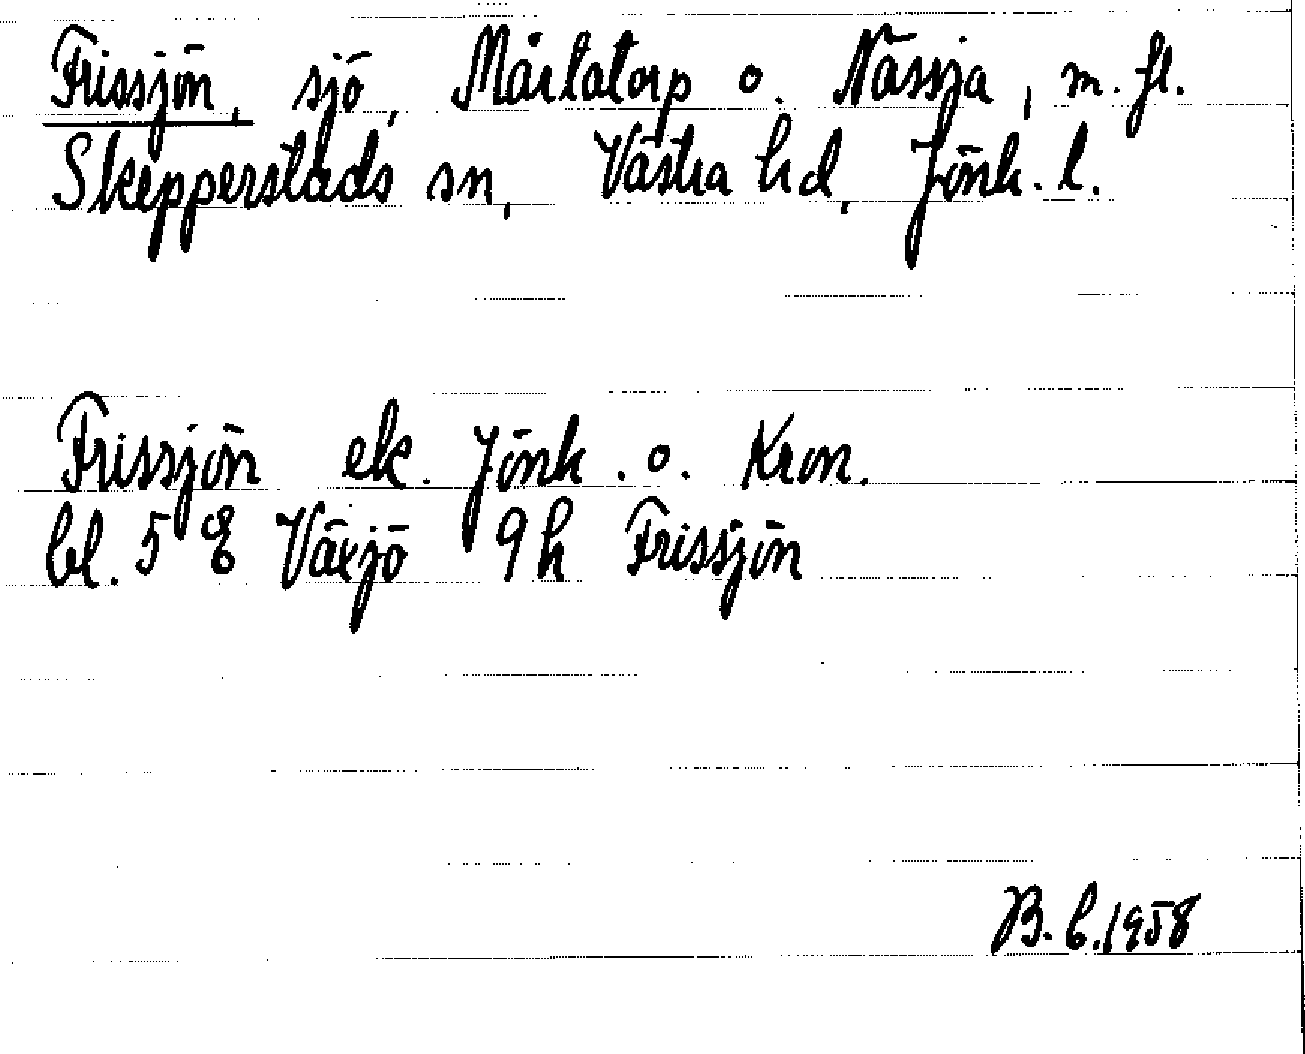 Frissjön, sjö, Mårtatorp o. Nässja, m. fl.
Skepperstads sn, Västra hd, Jönk. l.
Frissjön ek. Jönk. o. Kron.
bl. 5 E Växjö 9h Frissjön
B. b. 1958